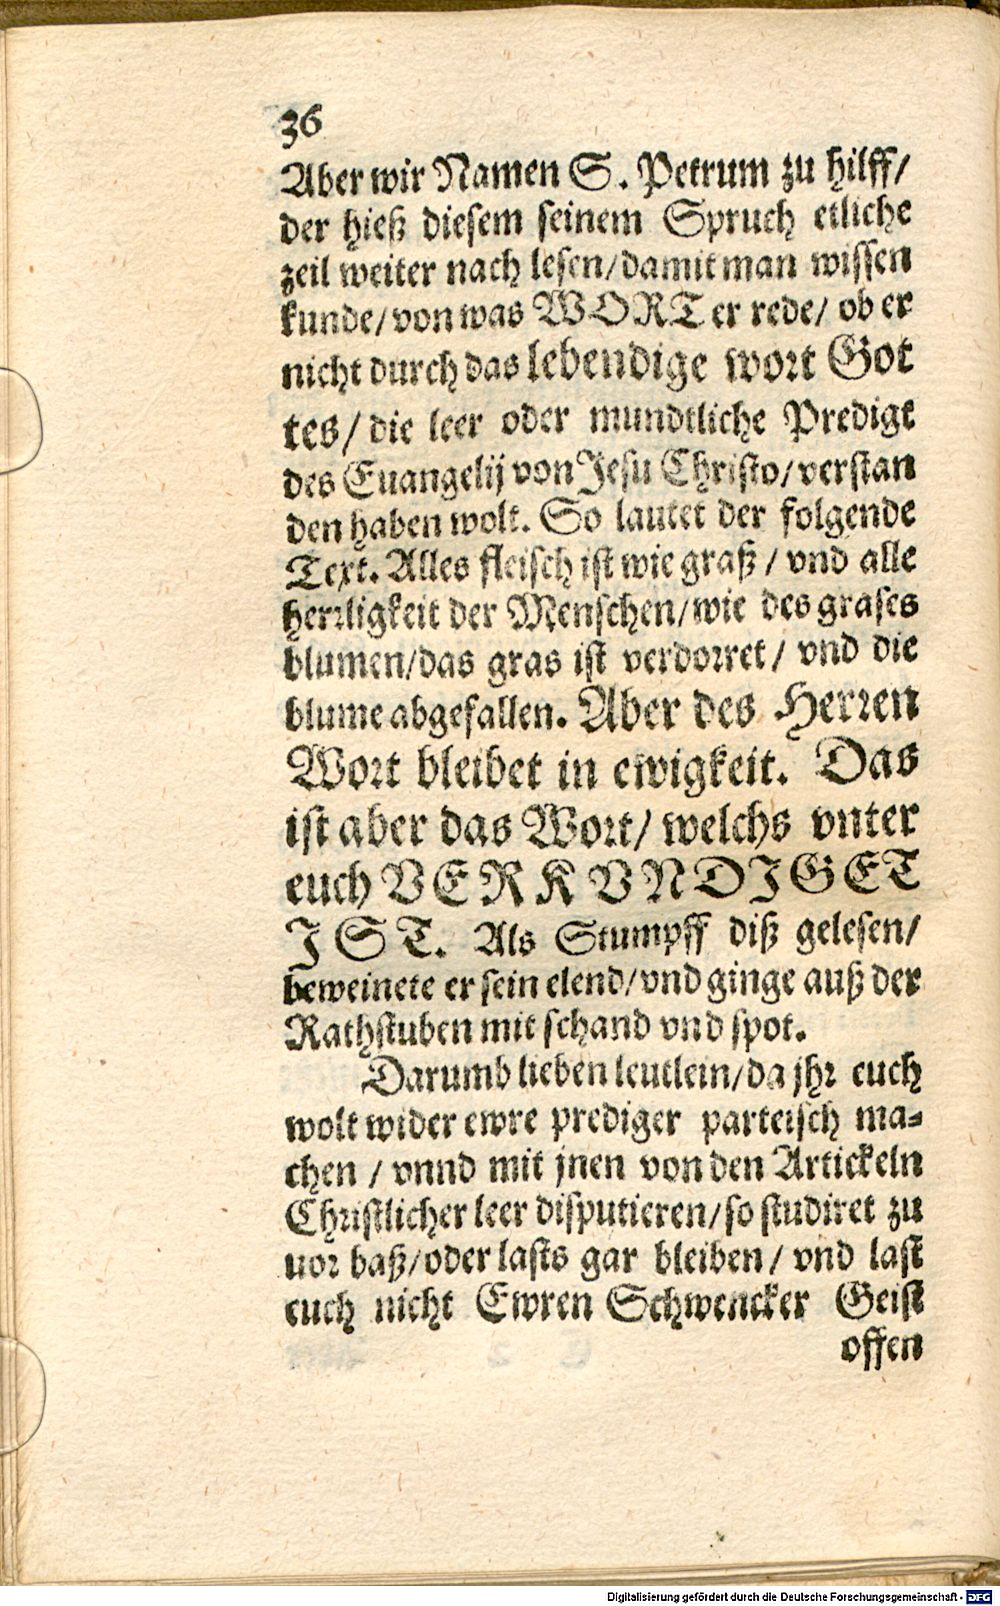 36
Aber wir Namen S. Petrum zu hilff/
der hieß diesem seinem Spruch etliche
zeil weiter nach lesen/damit man wissen
kunde/von was WORT er rede/ ob er
nicht durch das lebendige wort Got
tes/die leer oder mundtliche Predigt
des Euangelij von Jesu Christo/verstan
den haben wolt. So lautet der folgende
Text. Alles fleisch ist wie graß/vnd alle
herrligkeit der Menschen/wie des grases
blumen/das gras ist verdorret/vnd die
blume abgefallen. Aber des Herren
Wort bleibet in ewigkeit. Das
ist aber das Wort/welchs vnter
euch VERKVNDIGET
IST. Als Stumpff diß gelesen/
beweinete er sein elend/vnd ginge auß der
Rathstuben mit schand vnd spot.
Darumb lieben leutlein/da jhr euch
wolt wider ewre prediger parteisch ma⸗
chen/vnnd mit jnen von den Artickeln
Christlicher leer disputieren/so studiret zu
uor baß/oder lasts gar bleiben/vnd last
euch nicht Ewren Schwencker Geist
offen
Digitalisierung gefördert durch die Deutsche Forschungsgemeinschaft - DFG